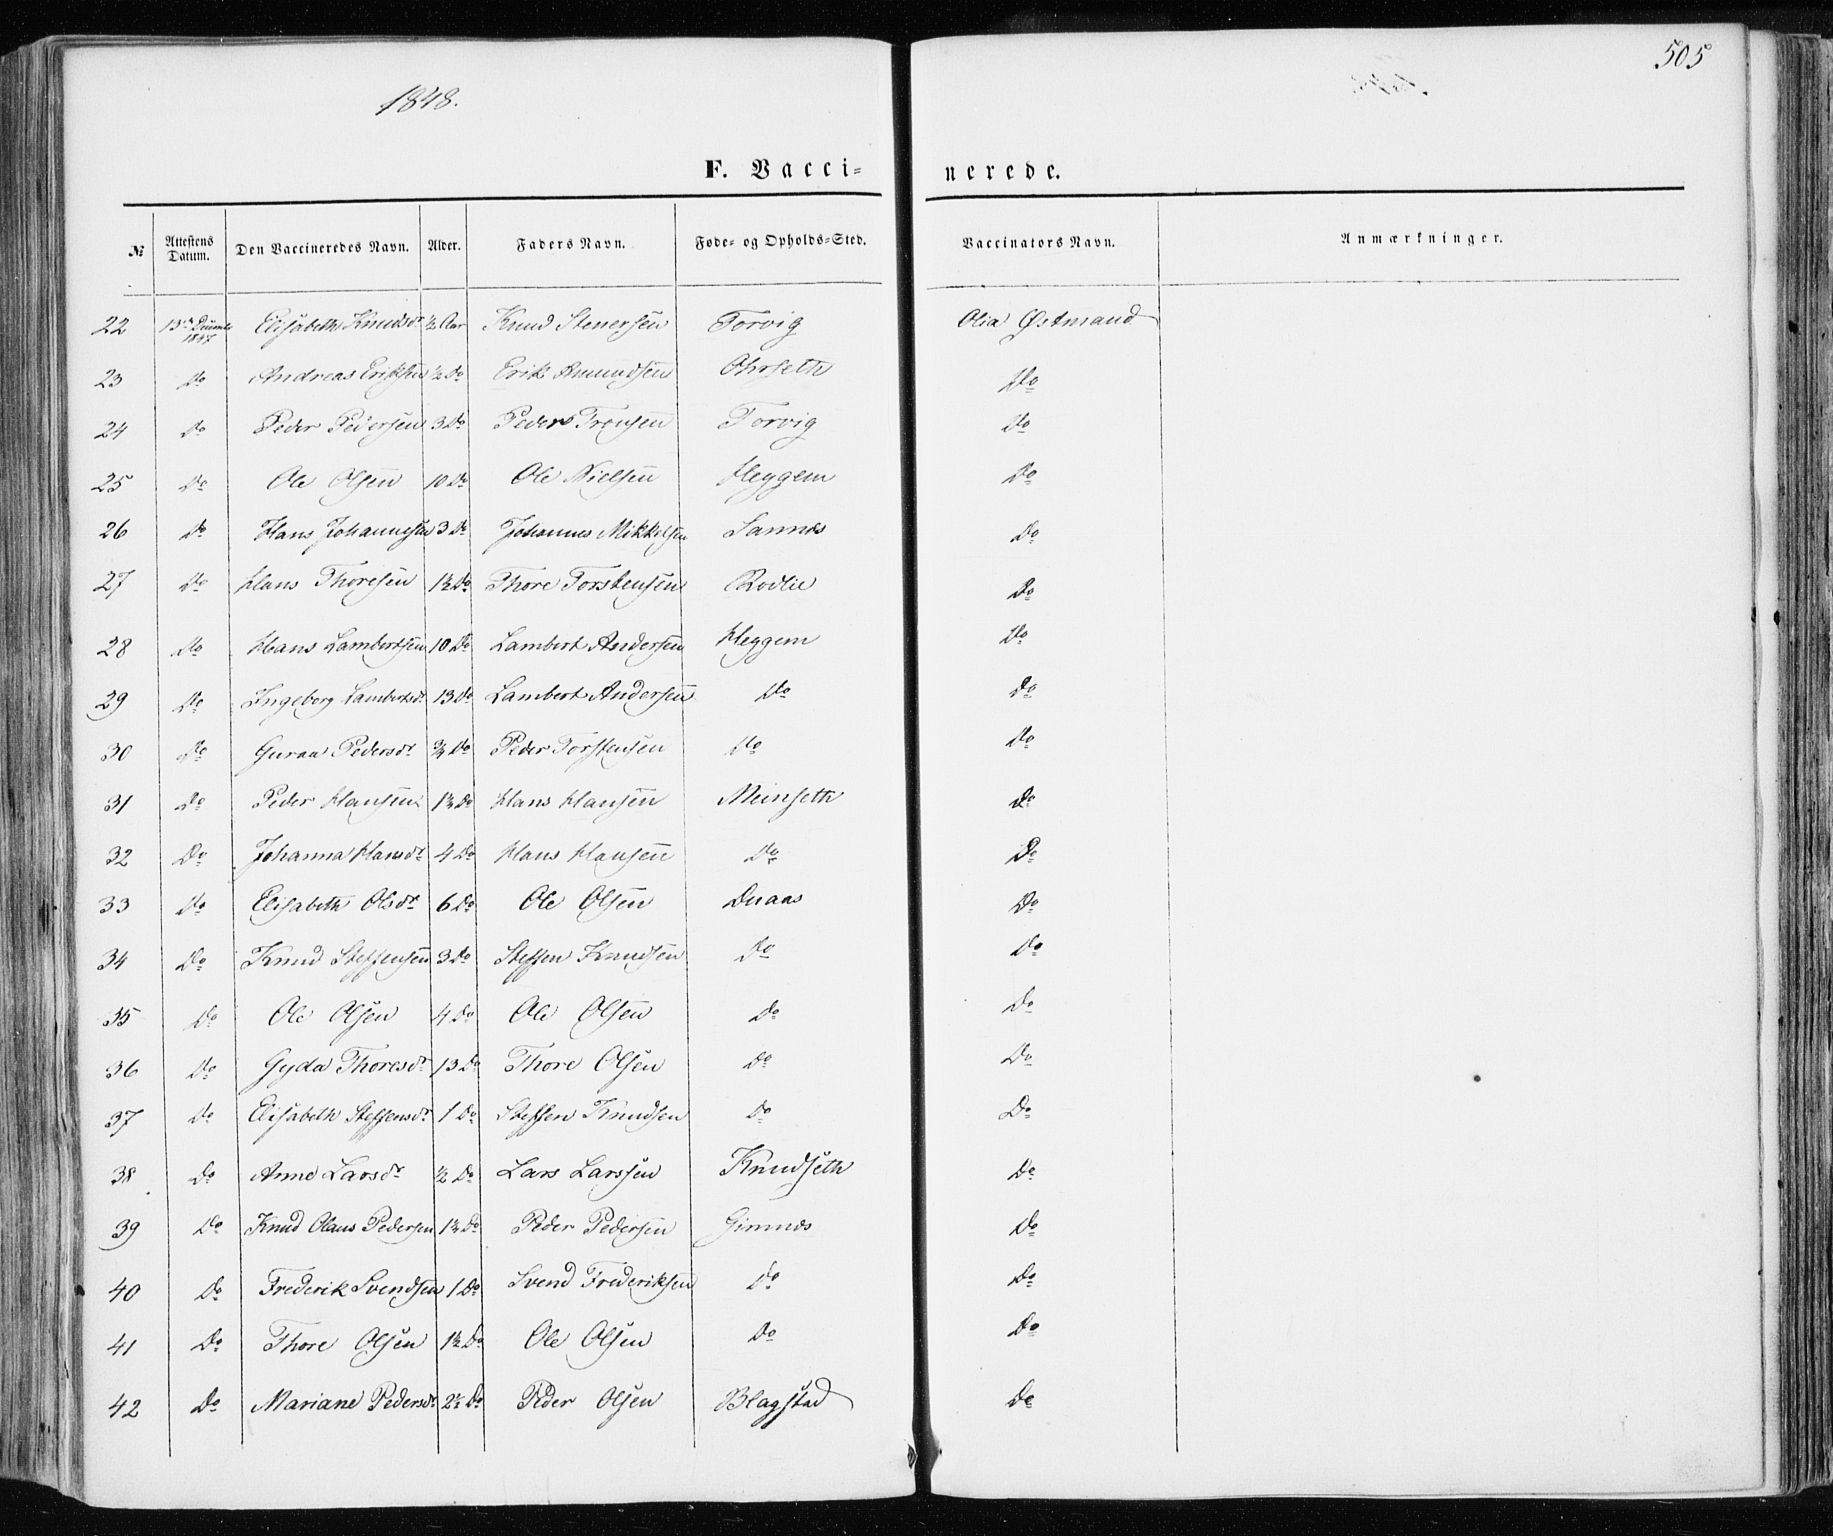 505
1848.
F. Vaccinerede.
№ Attestens Datum. Den Vaccineredes Navn. Alder. Faders Navn. Føde- og Opholds-Sted. Vaccinators Navn. Anmærkninger.
22 13de Decemb 1847 Elisabeth Knudsdr ½ Aar Knud Stenersen Torvig Olia Østmand
23 Do Andreas Eriksen ½ Do Erik Amundsen Ohrseth Do
24 Do Peder Pedersen 3 Do Peder Tronsen Torvig Do
25 Do Ole Olsen 10 Do Ole Nielsen Heggem Do
26 Do Hans Johannesen 3 Do Johannes Mikkelsen Sannes Do
27 Do Hans Thoresen 1½ Do Thore Torstensen Rodlie Do
28 Do Hans Lambertsen 10 Do Lambert Andersen Heggem Do
29 Do Ingeborg Lambertsdr 13 Do Lambert Andersen Do Do
30 Do Guraa Pedersdr ¾ Do Peder Torstensen Do Do
31 Do Peder Hansen 1½ Do Hans Hansen Meinseth Do
32 Do Johanna Hansdr 4 Do Hans Hansen Do Do
33 Do Elisabeth Olsdr 6 Do Ole Olsen Duaas Do
34 Do Knud Steffensen 3 Do Steffen Knudsen Do Do
35 Do Ole Olsen 4 Do Ole Olsen Do Do
36 Do Gyda Thoresdr 13 Do Thore Olsen Do Do
37 Do Elisabeth Steffensdr 1 Do Steffen Knudsen Do Do
38 Do Anne Larsdr ½ Do Lars Larssen Knudseth Do
39 Do Knud Olaus Pedersen 1½ Do Peder Pedersen Gimnes Do
40 Do Frederik Svendsen 1 Do Svend Frederiksen Do Do
41 Do Thore Olsen 1½ Do Ole Olsen Do Do
42 Do Mariane Pedersdr 2½ Do Peder Olsen Blagstad Do